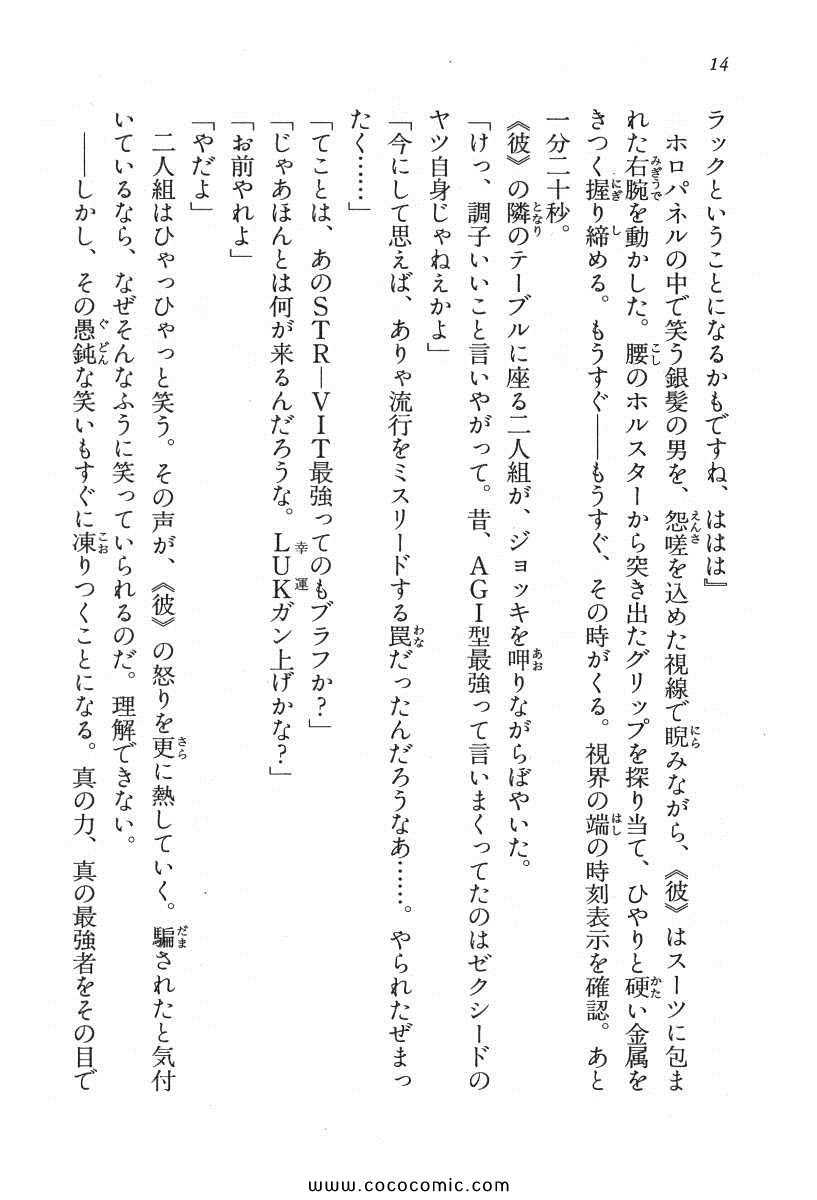 14
ラックということになるかもですね、ははは』
ホロパネルの中で笑う銀髪の男を、怨嗟を込めた視線で睨みながら、《彼》はスーツに包ま
れた右腕を動かした。腰のホルスターから突き出たグリップを探り当て、ひやりと硬い金属を
きつく握り締める。もうすぐ――もうすぐ、その時がくる。視界の端の時刻表示を確認。あと
一分二十秒。
《彼》の隣のテーブルに座る二人組が、ジョッキを呷りながらぼやいた。
「けっ、調子いいこと言いやがって。昔、AGI型最強って言いまくってたのはゼクシードの
ヤツ自身じゃねえかよ」
「今にして思えば、ありゃ流行をミスリードする罠だったんだろうなあ……。やられたぜまっ
たく……」
「てことは、あのSTR―VIT最強ってのもブラフか？」
「じゃあほんとは何が来るんだろうな。LUKガン上げかな？」
「お前やれよ」
「やだよ」
二人組はひゃっひゃっと笑う。その声が、《彼》の怒りを更に熱していく。騙されたと気付
いているなら、なぜそんなふうに笑っていられるのだ。理解できない。
――しかし、その愚鈍な笑いもすぐに凍りつくことになる。真の力、真の最強者をその目で
www.cococomic.com